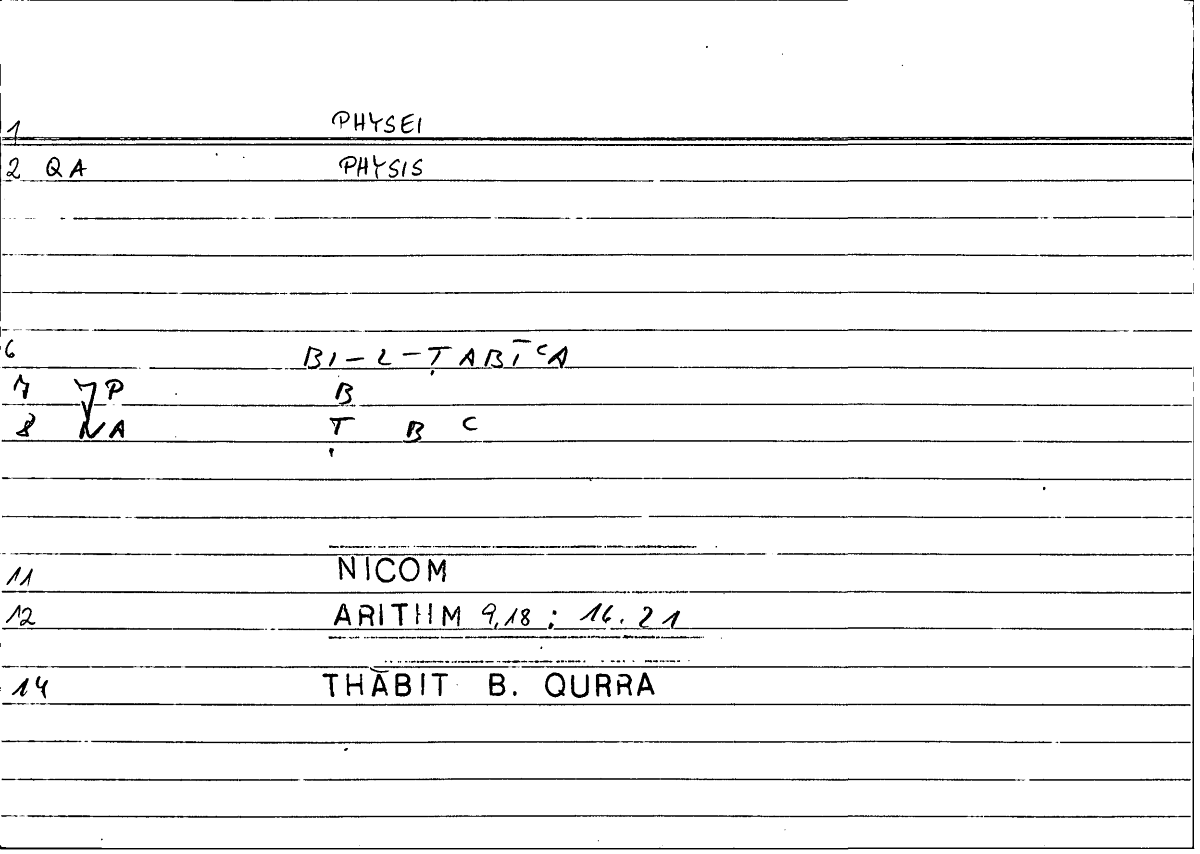 1 PHYSEI
2 QA PHYSIS
6 BI-L-ṬABĪCA
7 P B
8 NA Ṭ B C
11 NICOM
12 ARITHM 9,18 : 16.21
14 THĀBIT B. QURRA